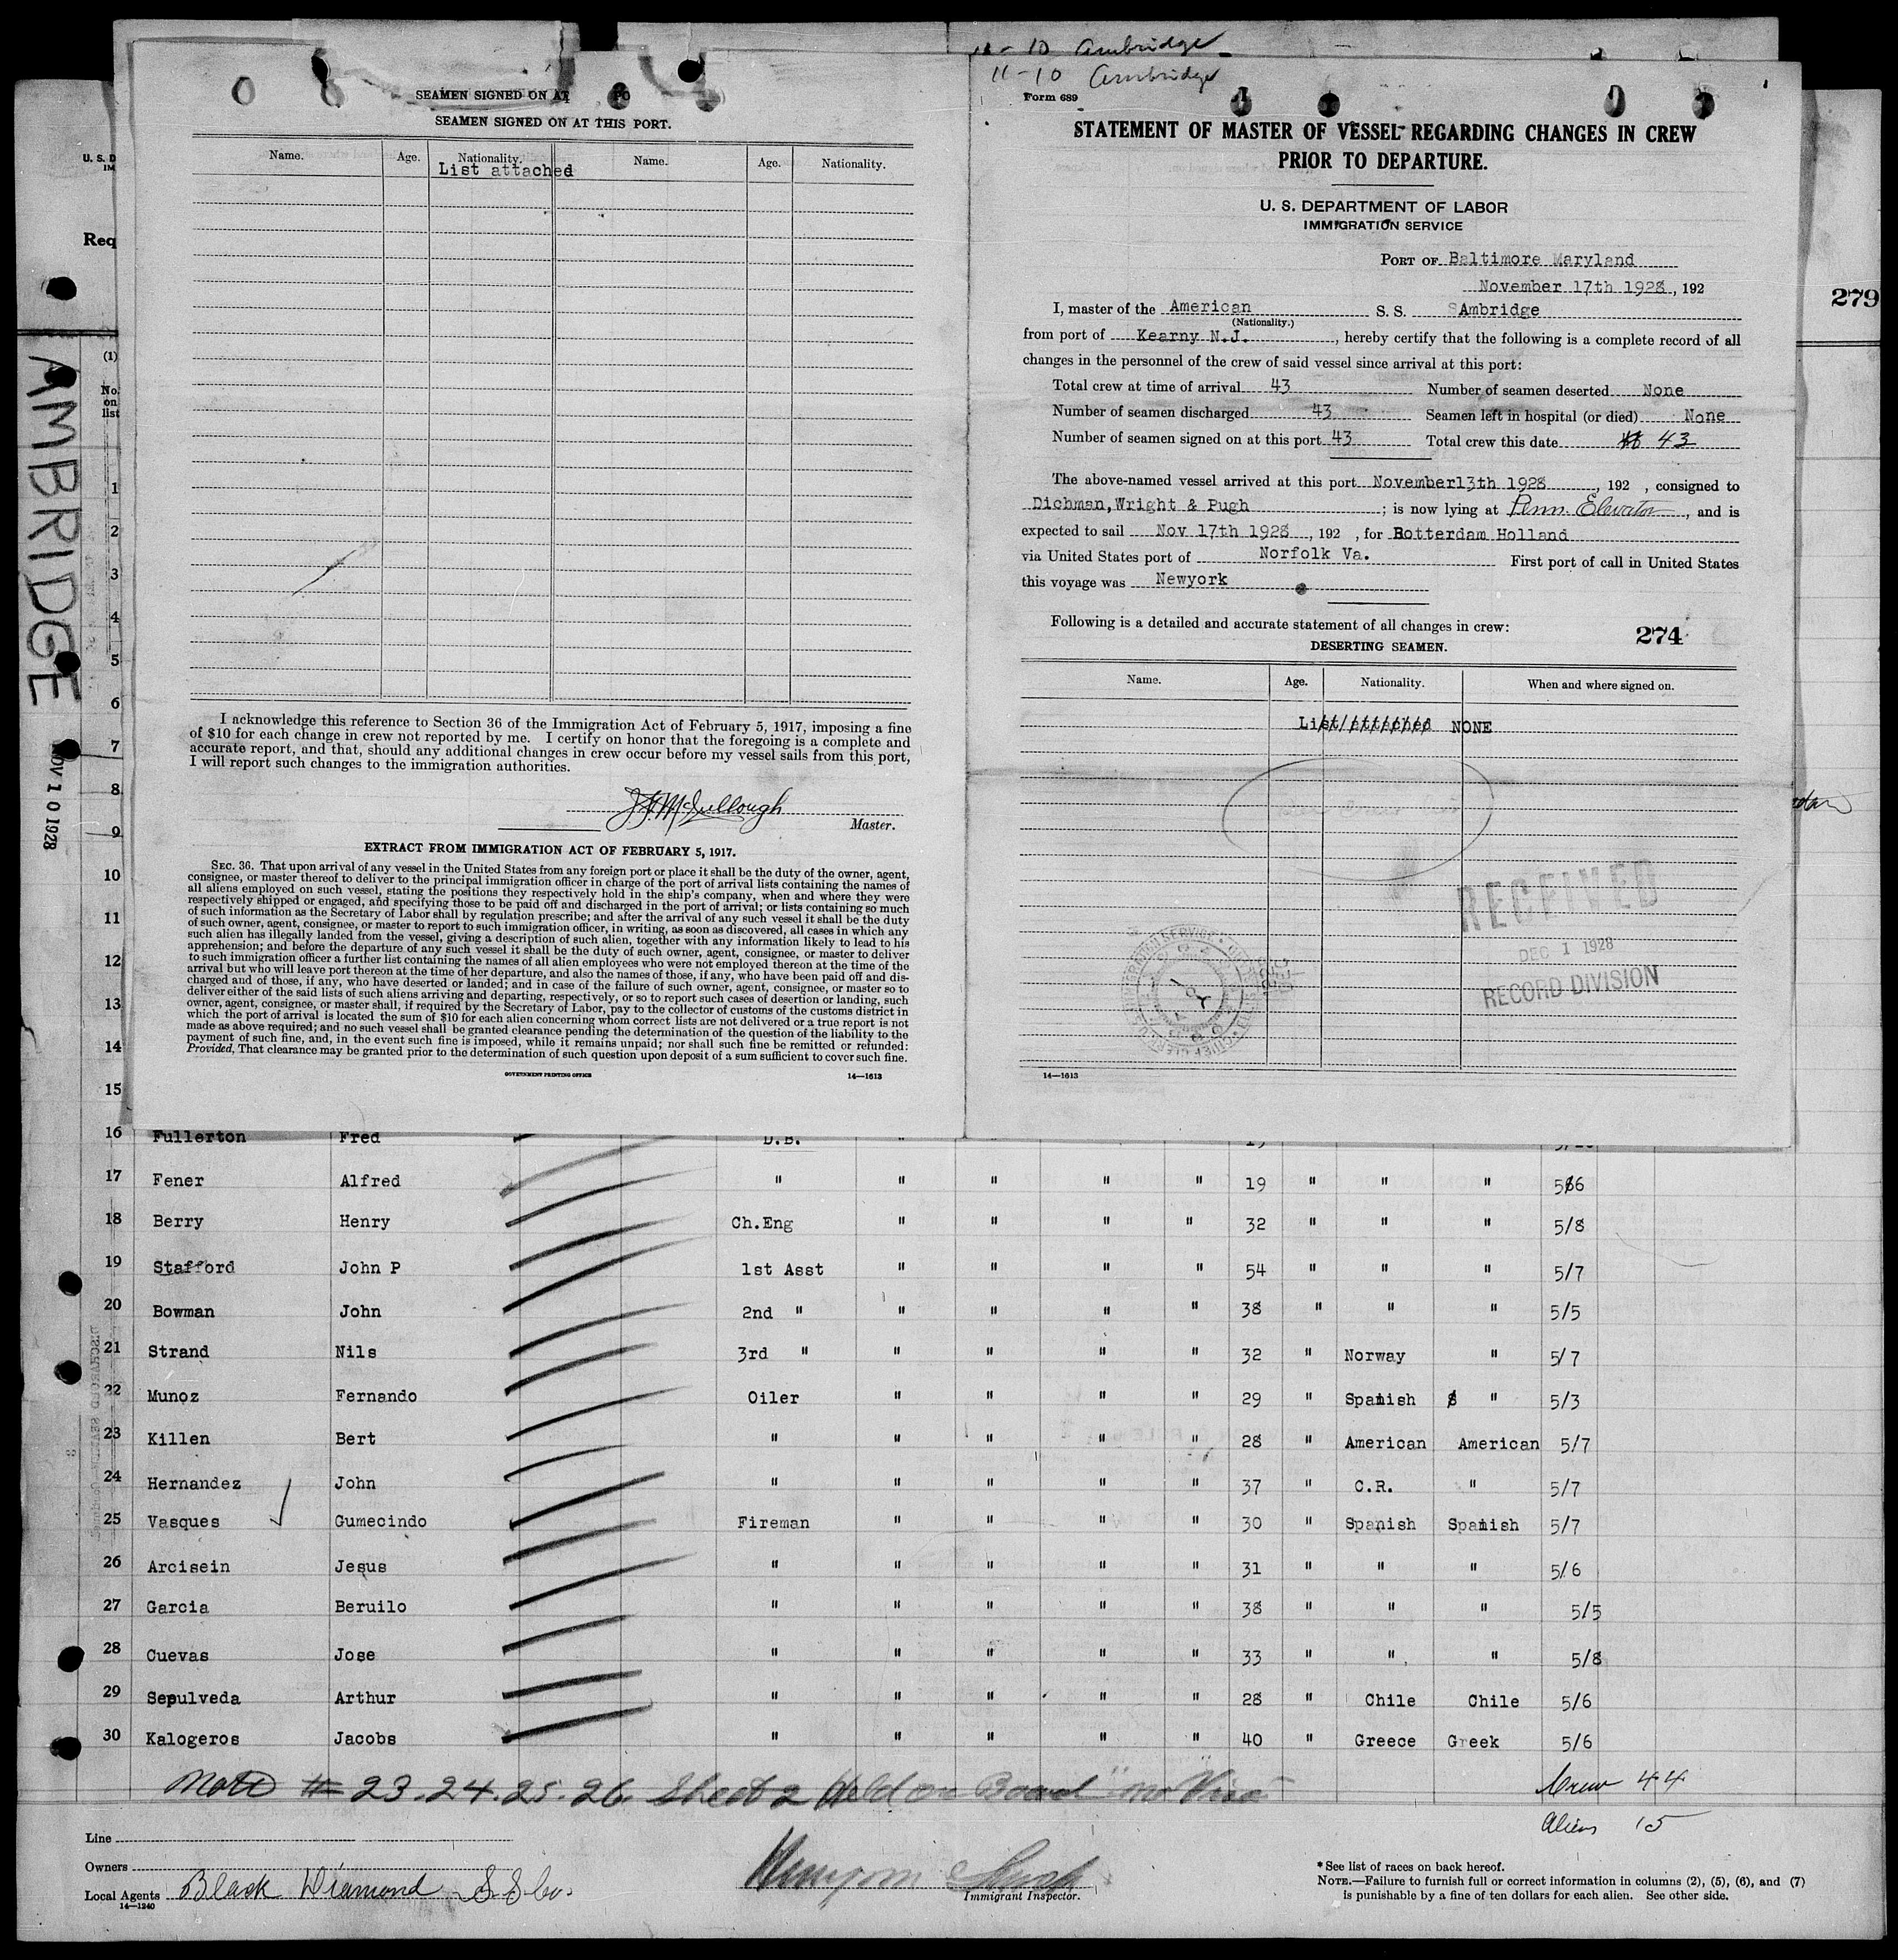 11-10 Ambridge
11-10 Ambridge
SEAMEN SIGNED ON AT
SEAMEN SIGNED ON AT THIS PORT.
Name. Age. Nationality. Name. Age. Nationality.
List attached
I acknowledge this reference to Section 36 of the Immigration Act of February 5, 1917, imposing a fine
of $10 for each change in crew not reported by me. I certify on honor that the foregoing is a complete and
accurate report, and that, should any additional changes in crew occur before my vessel sails from this port,
I will report such changes to the immigration authorities.
J.F. McCullough
Master.
EXTRACT FROM IMMIGRATION ACT OF FEBRUARY 5, 1917.
SEC. 36. That upon arrival of any vessel in the United States from any foreign port or place it shall be the duty of the owner, agent,
consignee, or master thereof to deliver to the principal immigration officer in charge of the port of arrival lists containing the names of
all aliens employed on such vessel, stating the positions they respectively hold in the ship's company, when and where they were
respectively shipped or engaged, and specifying those to be paid off and discharged in the port of arrival; or lists containing so much
of such information as the Secretary of Labor shall by regulation prescribe; and after the arrival of any such vessel it shall be the duty
of such owner, agent, consignee, or master to report to such immigration officer, in writing, as soon as discovered, all cases in which any
such alien has illegally landed from the vessel, giving a description of such alien, together with any information likely to lead to his
apprehension; and before the departure of any such vessel it shall be the duty of such owner, agent, consignee, or master to deliver
to such immigration officer a further list containing the names of all alien employees who were not employed thereon at the time of the
arrival but who will leave port thereon at the time of her departure, and also the names of those, if any, who have been paid off and dis-
charged and of those, if any, who have deserted or landed; and in case of the failure of such owner, agent, consignee, or master so to
deliver either of the said lists of such aliens arriving and departing, respectively, or so to report such cases of desertion or landing, such
owner, agent, consignee, or master shall, if required by the Secretary of Labor, pay to the collector of customs of the customs district in
which the port of arrival is located the sum of $10 for each alien concerning whom correct lists are not delivered or a true report is not
made as above required; and no such vessel shall be granted clearance pending the determination of the question of the liability to the
payment of such fine, and, in the event such fine is imposed, while it remains unpaid; nor shall such fine be remitted or refunded:
Provided, That clearance may be granted prior to the determination of such question upon deposit of a sum sufficient to cover such fine.
GOVERNMENT PRINTING OFFICE 14—1613
Form 689
STATEMENT OF MASTER OF VESSEL REGARDING CHANGES IN CREW
PRIOR TO DEPARTURE.
U. S. DEPARTMENT OF LABOR
IMMIGRATION SERVICE
PORT OF Baltimore Maryland
November 17th 1928, 192
I, master of the American S. S. Ambridge
(Nationality.)
from port of Kearny N.J., hereby certify that the following is a complete record of all
changes in the personnel of the crew of said vessel since arrival at this port:
Total crew at time of arrival 43 Number of seamen deserted None
Number of seamen discharged 43 Seamen left in hospital (or died) None
Number of seamen signed on at this port 43 Total crew this date 43
The above-named vessel arrived at this port November13th 1928, 192 , consigned to
Dichman,Wright & Pugh; is now lying at Penn. Elevator, and is
expected to sail Nov 17th 1928, 192 , for Rotterdam Holland
via United States port of Norfolk Va. First port of call in United States
this voyage was Newyork
Following is a detailed and accurate statement of all changes in crew:
274
DESERTING SEAMEN.
Name. Age. Nationality. When and where signed on.
List attached NONE
RECEIVED
DEC 1 1928
RECORD DIVISION
14—1613
279
U. S. D
IM
Req
AMBRIDGE
NOV 10 1928
(1)
No.
on
list
1
2
3
4
5
6
7
8
9
10
11
12
13
14
15
16 Fullerton Fred D.B. " "
17 Fener Alfred " " " " " 19 " " " 5/6
18 Berry Henry Ch.Eng " " " " 32 " " " 5/8
19 Stafford John P 1st Asst " " " " 54 " " " 5/7
20 Bowman John 2nd " " " " " 38 " " " 5/5
21 Strand Nils 3rd " " " " " 32 " Norway " 5/7
22 Munoz Fernando Oiler " " " " 29 " Spanish " 5/3
23 Killen Bert " " " " " 28 " American American 5/7
24 Hernandez John " " " " " 37 " C.R. " 5/7
25 Vasques Gumecindo Fireman " " " " 30 " Spanish Spanish 5/7
26 Arcisein Jesus " " " " " 31 " " " 5/6
27 Garcia Beruilo " " " " " 38 " " " 5/5
28 Cuevas Jose " " " " " 33 " " " 5/8
29 Sepulveda Arthur " " " " " 28 " Chile Chile 5/6
30 Kalogeros Jacobs " " " " " 40 " Greece Greek 5/6
Note # 23.24.25.26. Sheet 2 Held on Board "no Visa"
Crew 44
Aliens 15
Line
Owners
Local Agents Black Diamond S.S Co.
14—1240
Immigrant Inspector.
*See list of races on back hereof.
NOTE.—Failure to furnish full or correct information in columns (2), (5), (6), and (7)
is punishable by a fine of ten dollars for each alien. See other side.